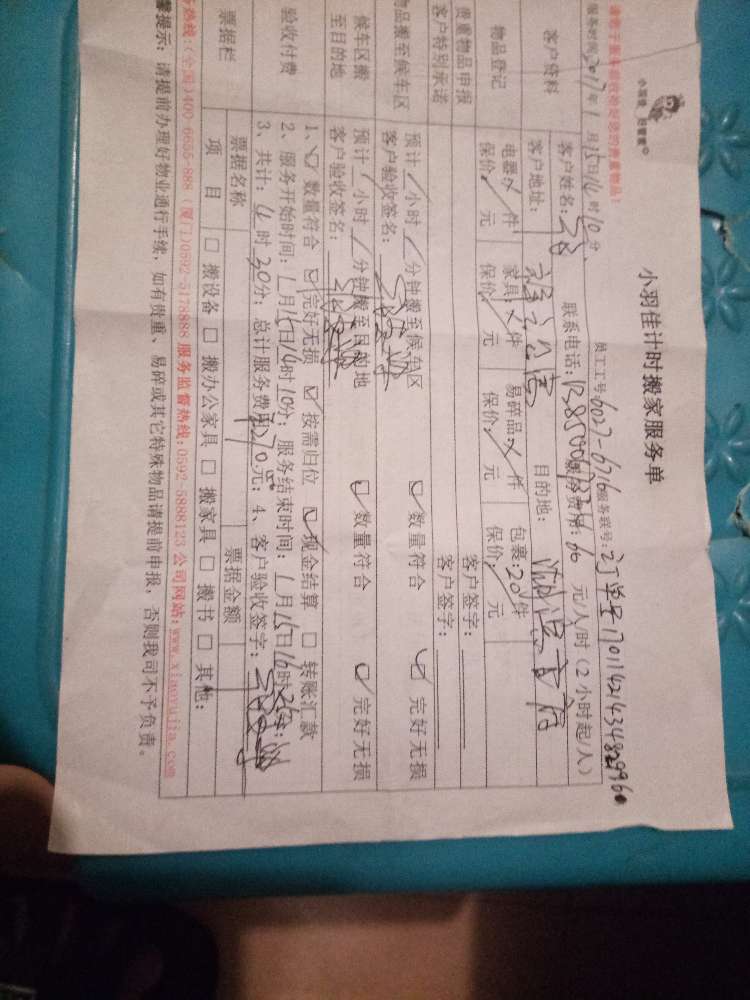 小羽佳计时搬家服务单
小羽佳 您管家
请勿于服务验收清您的贵重物品!
服务时间2017年1月15日14时10分 员工工号:6027-6716 服务联号:订单号
客户资料
客户姓名: 联系电话: 收费标准:60元/人/时(2小时起/人)
客户地址: 目的地:
物品登记
电器:件 家具:件 易碎品:件 包裹:20件
保价:元 保价:元 保价:元 保价:元
贵重物品申报 客户签字:
客户特别承诺 客户签字:
物品搬至候车区
预计/小时/分钟搬至候车区 数量符合 完好无损
客户验收签名:
候车区搬至目的地
预计/小时/分钟搬至目的地 数量符合 完好无损
客户验收签名:
验收付费
1、数量符合 完好无损 按需归位 现金结算 □ 转账汇款
2、服务开始时间:1月15日14时10分;服务结束时间:1月15日16时
3、共计:时30分;总计服务费用270元;4、客户验收签字:
票据栏
票据名称 票据金额
项目 □ 搬设备 □ 搬办公家具 □ 搬家具 □ 搬书 □ 其他:
务热线:(全国)400-6655-888 (厦门)0592-5178888 服务监督热线:0592-5888123 公司网站:www.xiaoyujia.com
馨提示:请提前办理好物业通行手续,如有贵重、易碎或其它特殊物品请提前申报,否则我司不予负责。